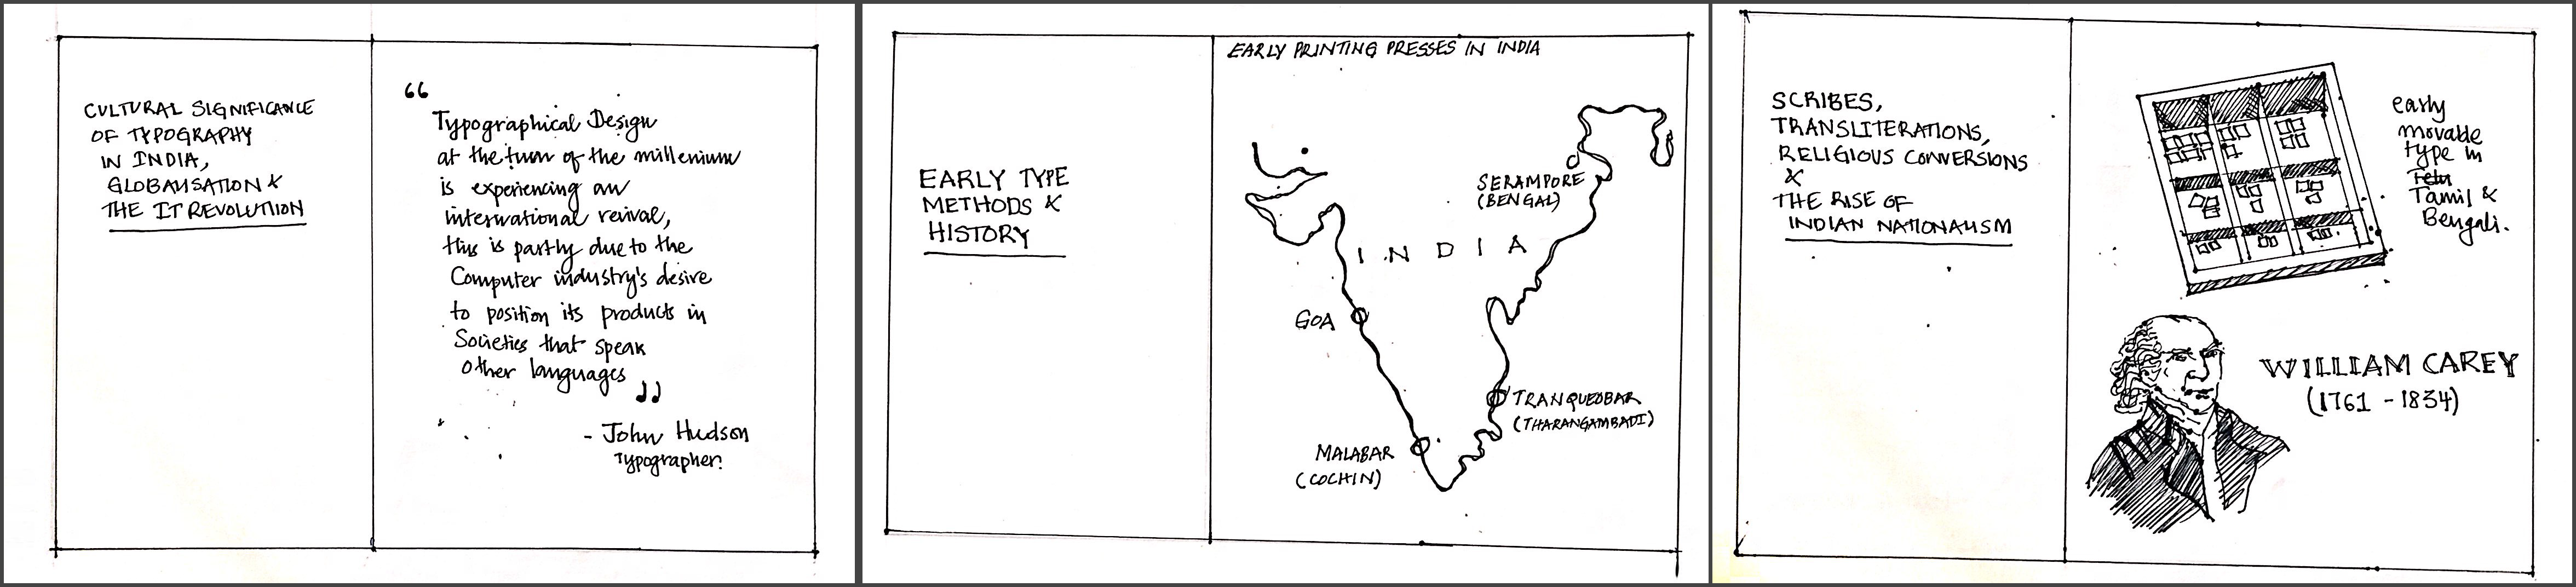 CULTURAL SIGNIFICANCE
OF TYPOGRAPHY
IN INDIA,
GLOBALISATION &
THE IT REVOLUTION
“
Typographical Design
at the turn of the millenium
is experiencing an
international revival,
this is partly due to the
Computer industry's desire
to position its products in
Societies that speak
other languages
”
- John Hudson
Typographer.
EARLY TYPE
METHODS &
HISTORY
EARLY PRINTING PRESSES IN INDIA
SERAMPORE
(BENGAL)
INDIA
GOA
TRANQUEOBAR
(THARANGAMBADI)
MALABAR
(COCHIN)
SCRIBES,
TRANSLITERATIONS,
RELIGIOUS CONVERSIONS
&
THE RISE OF
INDIAN NATIONALISM
early
movable
type in
Telu
Tamil &
Bengali.
WILLIAM CAREY
(1761 - 1834)